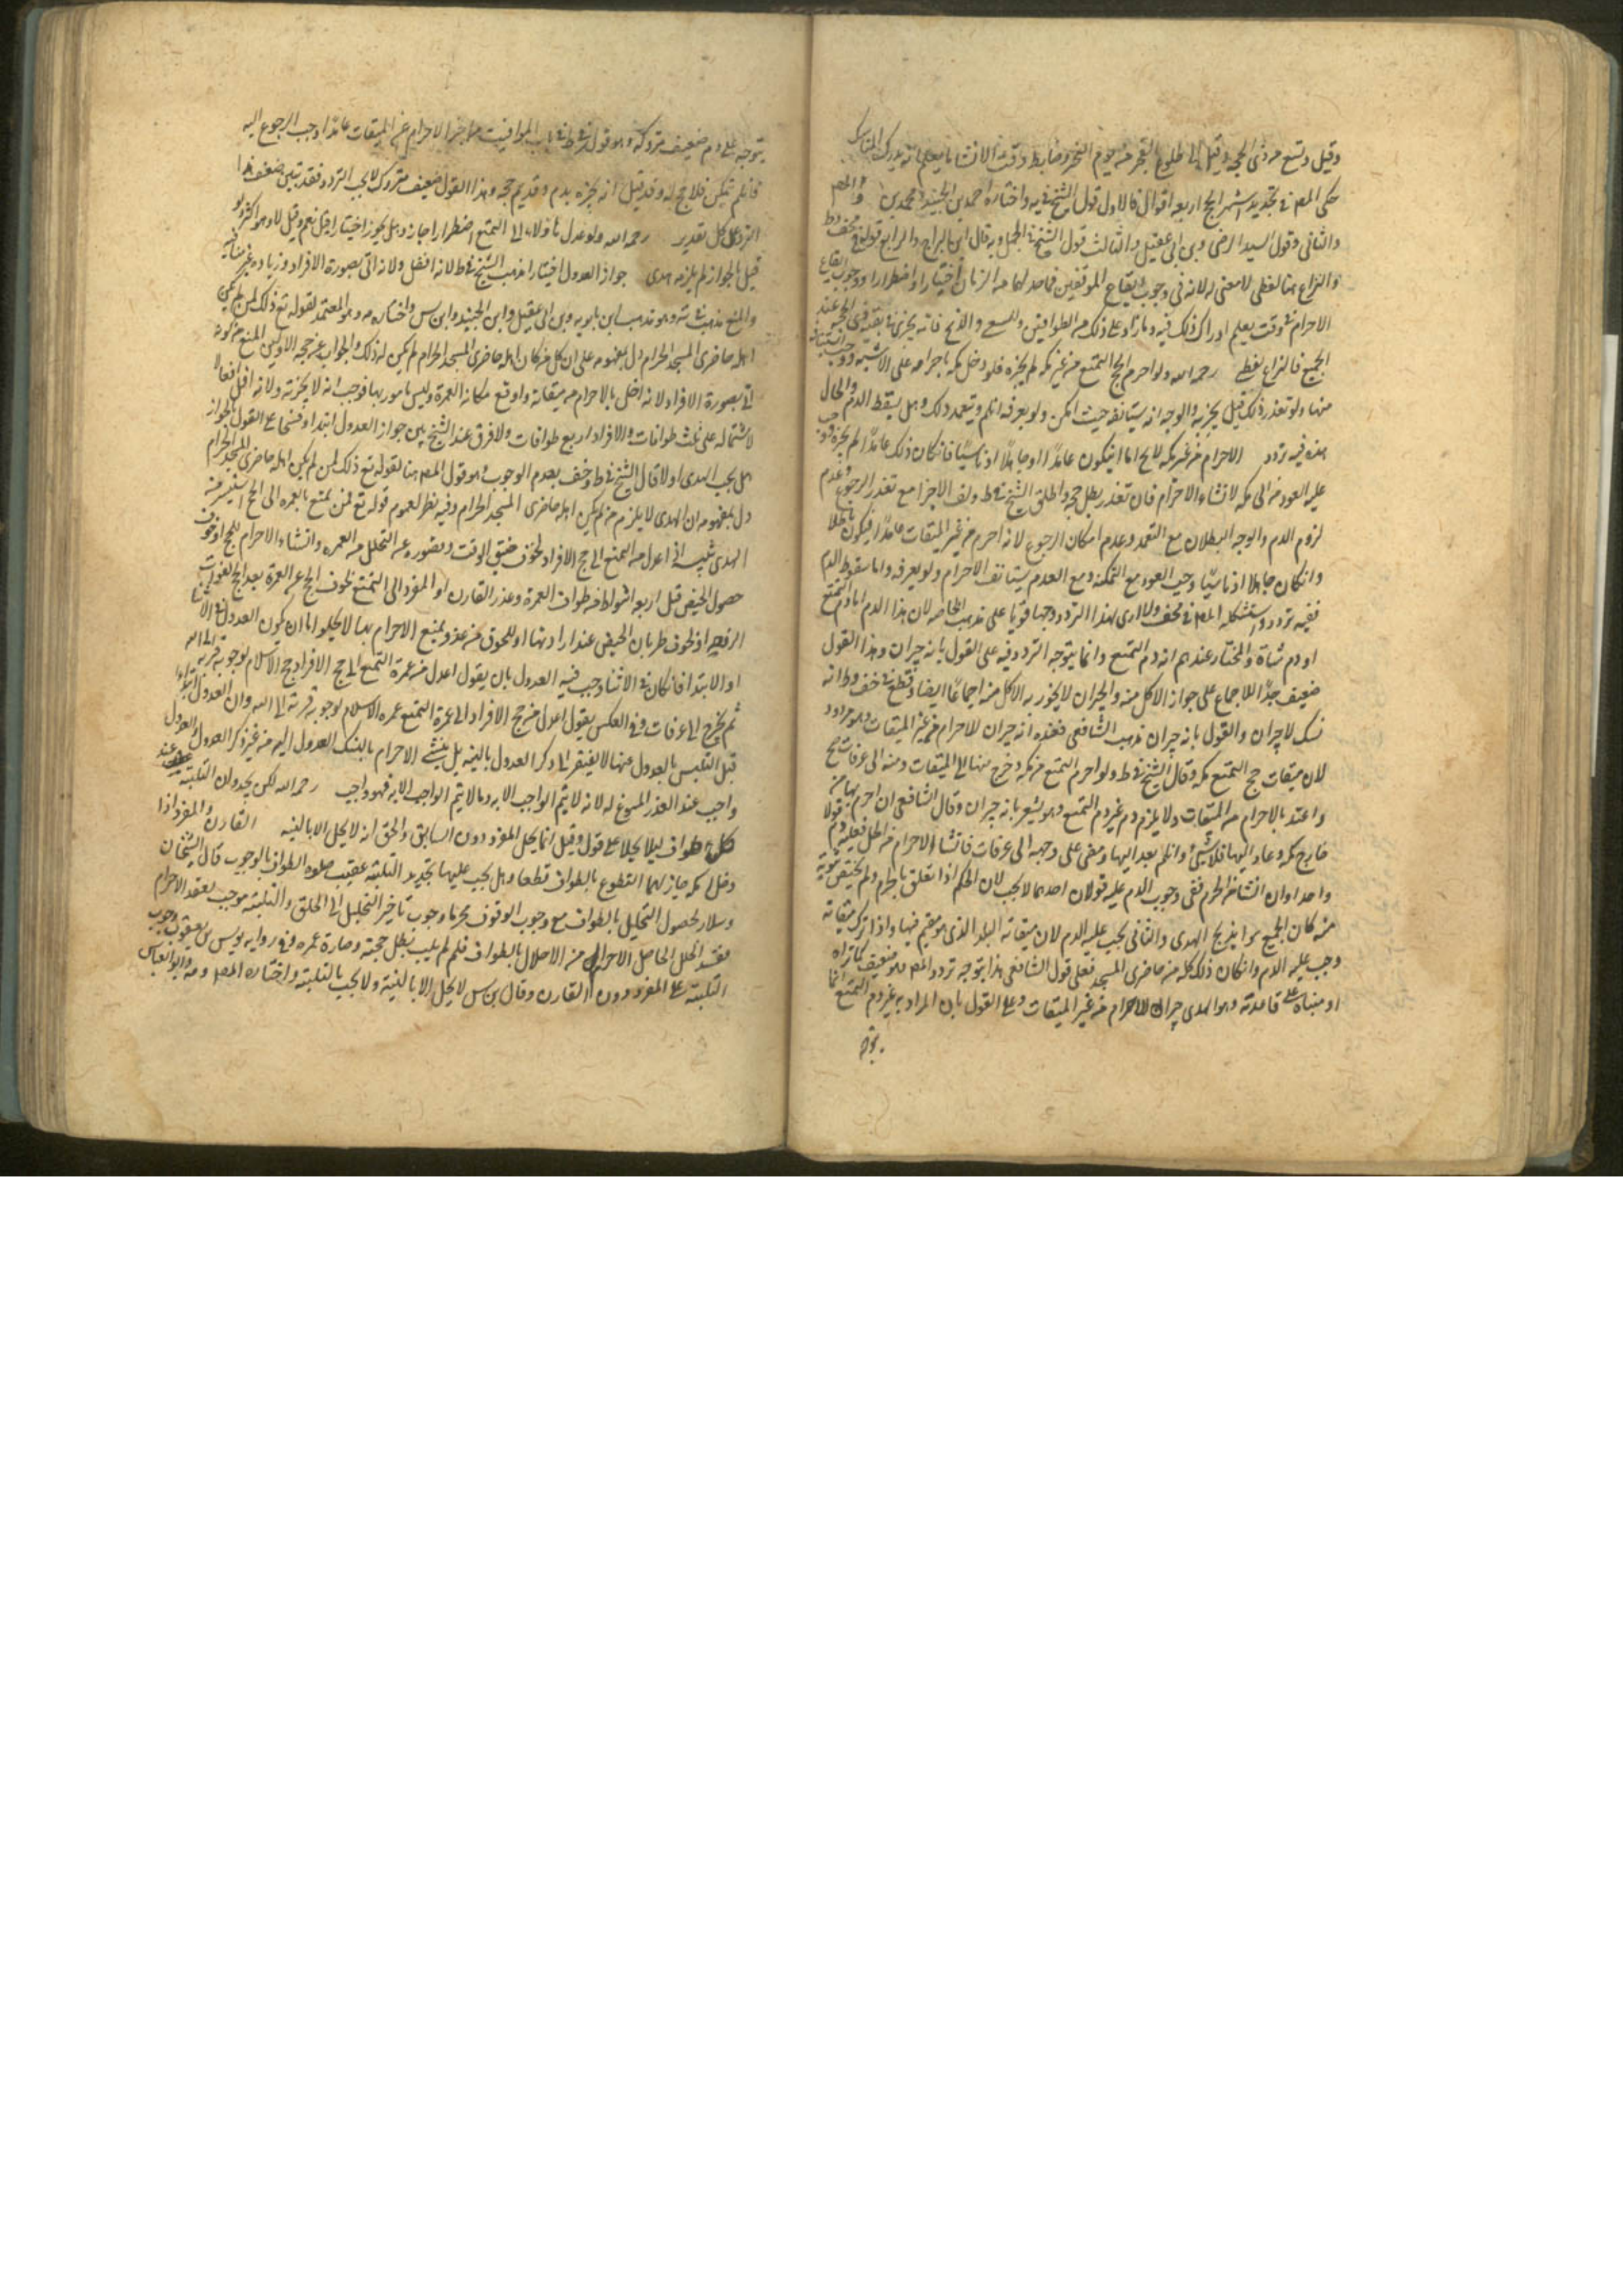 وقيل وتسع من ذى الحجة وقيل الى طلوع الفجر من يوم النحر وضابط وقت الانشا ما يعلم انه يدرك المناسك
حكى المص فى تحديد اشهر الحج اربعه اقوال فالاول قول الشيخ فى يه واختاره احمد بن الجنيد محمد بن
والثانى وقول السيد المرتضى وبن ابى عقيل والثالث قول الشيخ فى الجمل وبه قال ابن البراج والرابع قوله فى
والنزاع هنا لفظى لا معنى له لانه فى وجوب ايقاع الموقفين فيما حد لهما من الزمان اختيارا واضطرارا ووجوب ايقاع
الاحرام فى وقت يعلم ادراك ذلك فيه وما زاد على ذلك من الطوافين والسعى والذبح فانه يجزى فى بقية ذى الحجة عند
الجميع فالنزاع لفظى رحمه الله ولو احرم بحج التمتع من غير مكه لم يجزه فلو دخل مكه باحرامه على الاشبه ووجب استينافه
منها ولو تعذر ذلك قيل يجزيه والوجه انه يستانفه حيث امكن ولو بعرفه ان لم يتعمد ذلك وهل يسقط الدم والحال
هذه فيه تردد الاحرام من غير مكه للحج اما ان يكون عامدًا او جاهلًا او ناسيًا فان كان ذلك عامدًا لم يجزه ووجب
عليه العود الى مكه لانشاء الاحرام فان تعذر بطل حجه واطلق الشيخ فى ط وف الاجزا مع تعذر الرجوع وعدم
لزوم الدم والوجه البطلان مع التعمد وعدم امكان الرجوع لانه احرم من غير الميقات عامدًا فيكون باطلا
وان كان جاهلا او ناسيًا وجب العود مع التمكنه ومع العدم يستانف الاحرام ولو بعرفه واما سقوط الدم
ففيه تردد واستشكله المص فى ولا ارى لهذا التردد وجها قويا على مذهب لان هذا الدم اما دم التمتع
او دم شاة والمختار عندهم انه دم التمتع وانما يتوجه التردد فيه على القول بانه جبران وهذا القول
ضعيف جدًّا للاجماع على جواز الاكل منه والجبران لا يجوز الاكل منه اجماعًا ايضا وقطع فى خف وط انه
نسك لا جبران والقول بانه جبران مذهب الشافعى فعنده انه جبران للاحرام من غير الميقات وهو مردود
لان ميقات حج التمتع مكه وقال الشيخ فى ط ولو احرم المتمتع من مكه وخرج منها الى الميقات ومنه الى عرفات صح
واعتد بالاحرام من الميقات ولا يلزم دم غير دم التمتع وهو يشعر بانه جبران وقال الشافعى ان احرم بها من
خارج مكه وعاد اليها فلا شئ وان لم يعد اليها ومضى على وجهه الى عرفات فانشاء الاحرام من الحل فعليه دم قولا
واحدا وان انشا من الحرم ففى وجوب الدم عليه قولان احدهما لا يجب لان الحكم اذا تعلق بالحرم ولم يختص ببقعه
منه كان الجميع سوا يذبح الهدى والثانى يجب عليه الدم لان ميقاته البلد الذى هو مقيم فيها واذا ترك ميقاته
وجب عليه الدم وان كان ذلك كله من حاضرى المسجد فعلى قول الشافعى هذا يتوجه تردد المص وهو ضعيف كما تراه
او مبناه على قاعدته وهو ان الهدى جبران للاحرام من غير الميقات وعلى القول بان المراد به غير دم التمتع انما
يتوجه
يتوجه على دم ضعيف متروك وهو قول فى ط فى باب المواقيت من اخر الاحرام عن الميقات عامدًا وجب الرجوع اليه
فان لم يتمكن فلا حج له وقد قيل انه يجبره بدم وقد يتم حجه وهذا القول ضعيف متروك لا يجب التردد فقد تبين ضعف هذا
التردد على كل تقدير رحمه الله ولو عدل هاولاء الى التمتع اضطرارا جاز وهل يجوز اختيارا قيل نعم وقيل لا وهو اكثر ولو
قيل بالجواز لم يلزمه هدى جواز العدول اختيارا مذهب الشيخ فى ط لانه افضل ولانه اتى بصورة الافراد وزيادة غير منافيه
والمنع مذهبه فى يه وهو مذهب ابن بابويه وبن ابى عقيل وابن الجنيد وابن س واختاره وهو المعتمد لقوله تع ذلك لمن لم يكن
اهله حاضرى المسجد الحرام دل بمفهومه على ان كل من كان اهله حاضرى المسجد الحرام لم يكن له ذلك والجواب عن حجه الاولين المنع من كونه
اتى بصورة الافراد لانه اخل بالاحرام من ميقاته واوقع مكانه العمرة وليس مامور بها فوجب انه لا يجزيه ولانه اقل افعالا
لاشتماله على ثلث طوافات والافراد اربع طوافات ولا فرق عند الشيخ بين جواز العدول ابتداء وفسخا على القول بالجواز
هل يجب الهدى اولا قال الشيخ فى ط وخف بعدم الوجوب وهو قول المص هنا لقوله تع ذلك لمن لم يكن اهله حاضرى المسجد الحرام
دل بمفهومه ان الهدى لا يلزم من لم يكن اهله حاضرى المسجد الحرام وفيه نظر لعموم قوله تع فمن تمتع بالعمره الى الحج فما استيسر من
الهدى تنبيه اذا عدل من التمتع الى حج الافراد لخوف ضيق الوقت وتصوره عن التحلل من العمره وانشاء الاحرام للحج او خوف
حصول الحيض قبل اربعه اشواط من طواف العمرة وعذر القارن او المفرد الى التمتع لخوف الحج عن العمرة بعد الحج لفوات
الرفقه او لخوف طريان الحيض عند ارادتها او للحوق من عدو يمنع الاحرام بها لا يخلو اما ان يكون العدول فى الاثنا
او الابتدا فان كان فى الاثنا وجب فيه العدول بان يقول اعدل من عمرة التمتع الى حج الافراد حج الاسلام لوجوبه قربة الى الله
ثم يخرج الى عرفات وفى العكس يقول اعدل من حج الافراد الى عمرة التمتع عمره الاسلام لوجوبه قربة الى الله وان العدول ابتداء
قبل التلبس بالعدول منها لا يفتقر الى ذكر العدول بالنيه بل ينشئ الاحرام بالنسك العدول اليه من غير ذكر العدول والعدول
واجب عند العذر المسوغ له لانه لا يتم الواجب الا به وما لا يتم الواجب الا به فهو واجب رحمه الله لكن يجددان التلبية عند
كل طواف ليلا يحلا على قول وقيل انما يحل المفرد دون السايق والحق انه لا يحل الا بالنيه القارن والمفرد اذا
دخلا مكه جاز لهما التطوع بالطواف قطعا وهل يجب عليهما تجديد التلبيه عقيب صلوه الطواف بالوجوب قال الشيخان
وسلار لحصول التحليل بالطواف مع وجوب الوقوف محرما ووجوب تاخير التحليل الى الحلق والتلبيه موجب لعقد الاحرام
من الاحلال بالطواف فلم لم يلب بطل حجته وصارة عمره وفى روايه يونس بن يعقوب وجوب
التلبيه على المفرد دون القارن وقال بن س لا يحل الا بالنية ولا يجب بالتلبيه واختاره المص وابو العباس